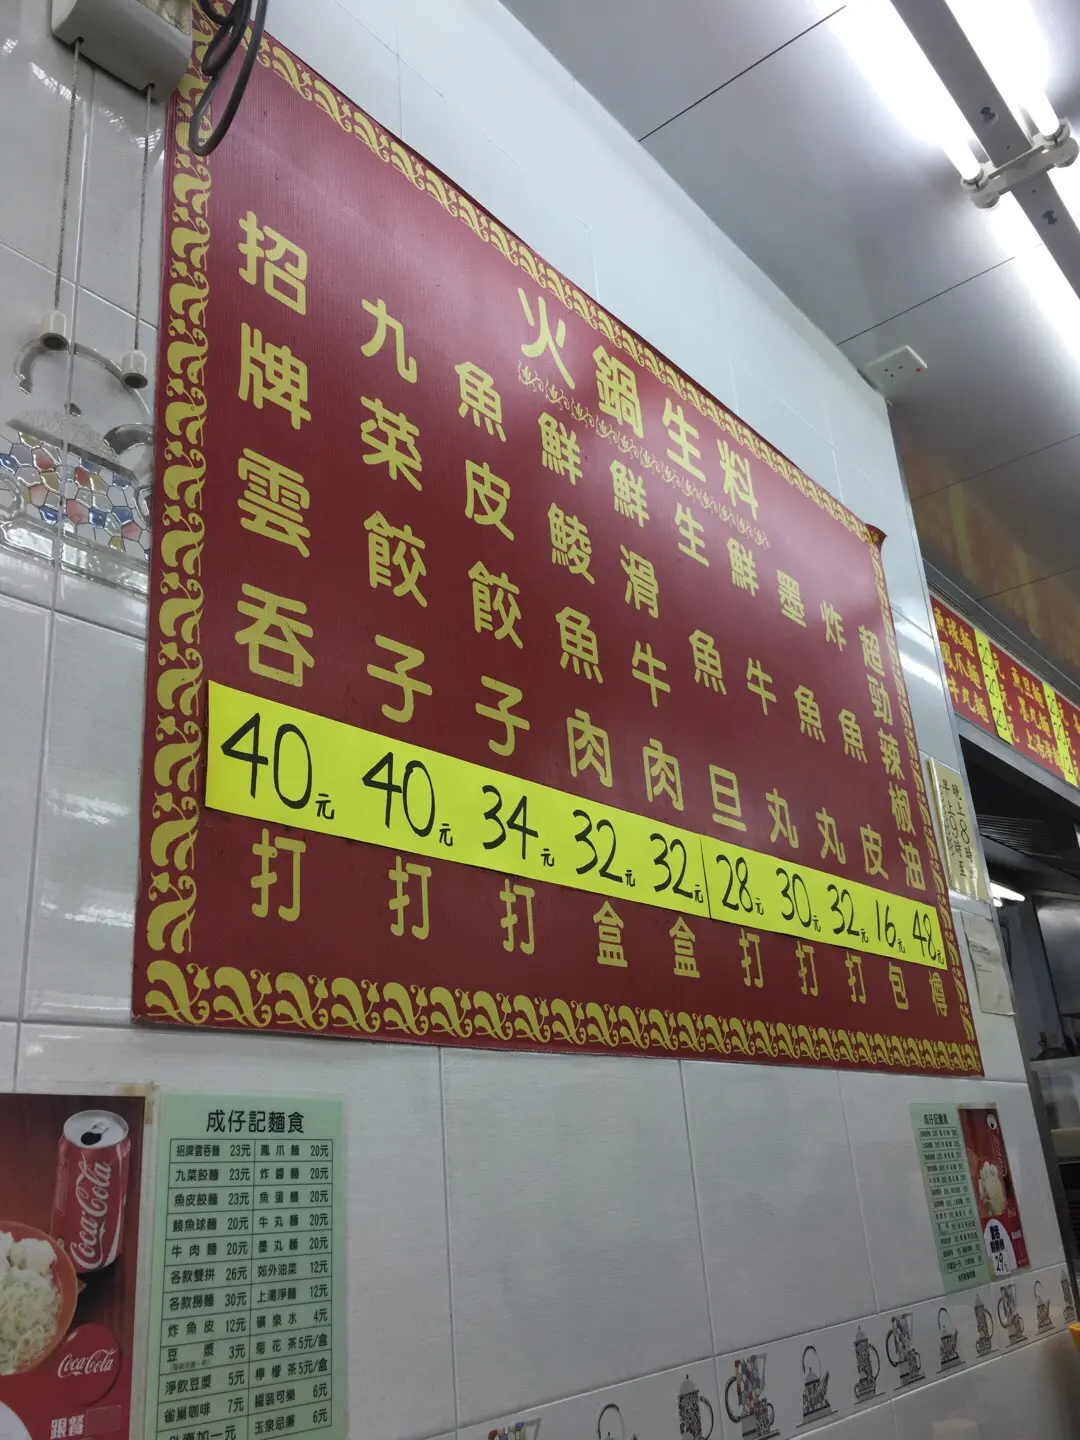 火鍋生料
招牌雲吞 40元 打
九菜餃子 40元 打
魚皮餃子 34元 打
鮮鯪魚肉 32元 盒
鮮滑牛肉 32元 盒
生魚旦 28元 打
鮮牛丸 30元 打
墨魚丸 32元 打
炸魚皮 16元 包
超勁辣椒油 48元 樽
成仔記麵食
招牌雲吞麵 23元 鳳爪麵 20元
九菜餃麵 23元 炸醬麵 20元
魚皮餃麵 23元 魚蛋麵 20元
鯪魚球麵 20元 牛丸麵 20元
牛肉麵 20元 墨丸麵 20元
各款雙拼 26元 郊外油菜 12元
各款撈麵 30元 上湯淨麵 12元
炸魚皮 12元 礦泉水 4元
豆漿 3元 菊花茶 5元/盒
淨飲豆漿 5元 檸檬茶 5元/盒
雀巢咖啡 7元 罐裝可樂 6元
外賣加一元 玉泉忌廉 6元
Coca-Cola
Coca-Cola
跟餐
成仔記麵食
29
魚球麵
鳳爪麵